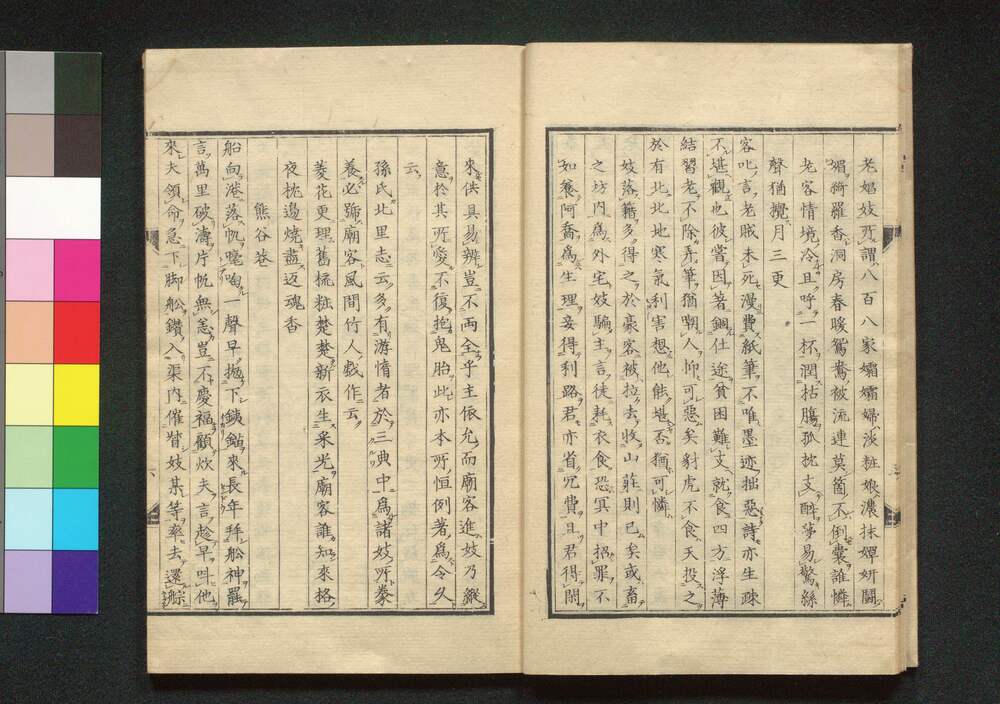 老妓所謂八百八家孀孀婦淡粧娘濃抹嬋妍鬪
媚綺羅香洞房春暖鴛鴦被流連莫箇不倒囊誰憐
老客情境冷且呼一杯潤枯膓孤枕支醉夢易驚絲
聲猶攪月三更
客叱言老賊未死漫費紙筆不唯墨迹拙惡詩亦生疎
不堪觀也彼嘗因著錮仕途貧困難支就食四方浮薄
結習老不除弄筆猶嘲人怖可惡矣豺虎不食天投之
於有北北地寒氣利害想他能堪否猶可憐
妓落籍多得之於豪客被拉去收山莊則已矣或畜
之坊内爲外宅妓騙主言徒耗衣食恐冥中招罪不
如養阿喬爲生理妾得利路君亦省冗費且君得閒
來供具易辨豈不兩全乎主依允而廟客進妓乃縱
意於其所愛不復抱鬼胎此亦本所恒例著爲令久
云
孫氏北里志云多有游惰者於三典中爲諸妓所豢
養必號廟客風間竹人戯作云
菱花更理舊梳粧楚楚新衣生采光廟客誰知來格
夜枕邊燒盡返魂香
熊谷巷
船向港落帆嘔啕一聲早拋下鐵錨來長年拜舩神罷
言萬里破濤片帆無恙豈不慶福顧炊夫言趁早叫他
來夫領命急下脚舩鑽入渠内催督妓某等率去還艅